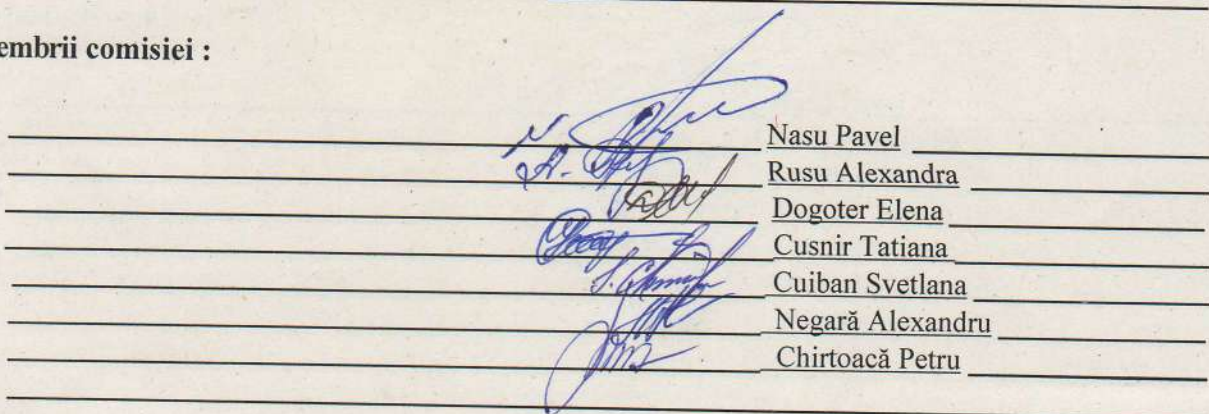 embrii comisiei :
Nasu Pavel
Rusu Alexandra
Dogoter Elena
Cusnir Tatiana
Cuiban Svetlana
Negară Alexandru
Chirtoacă Petru